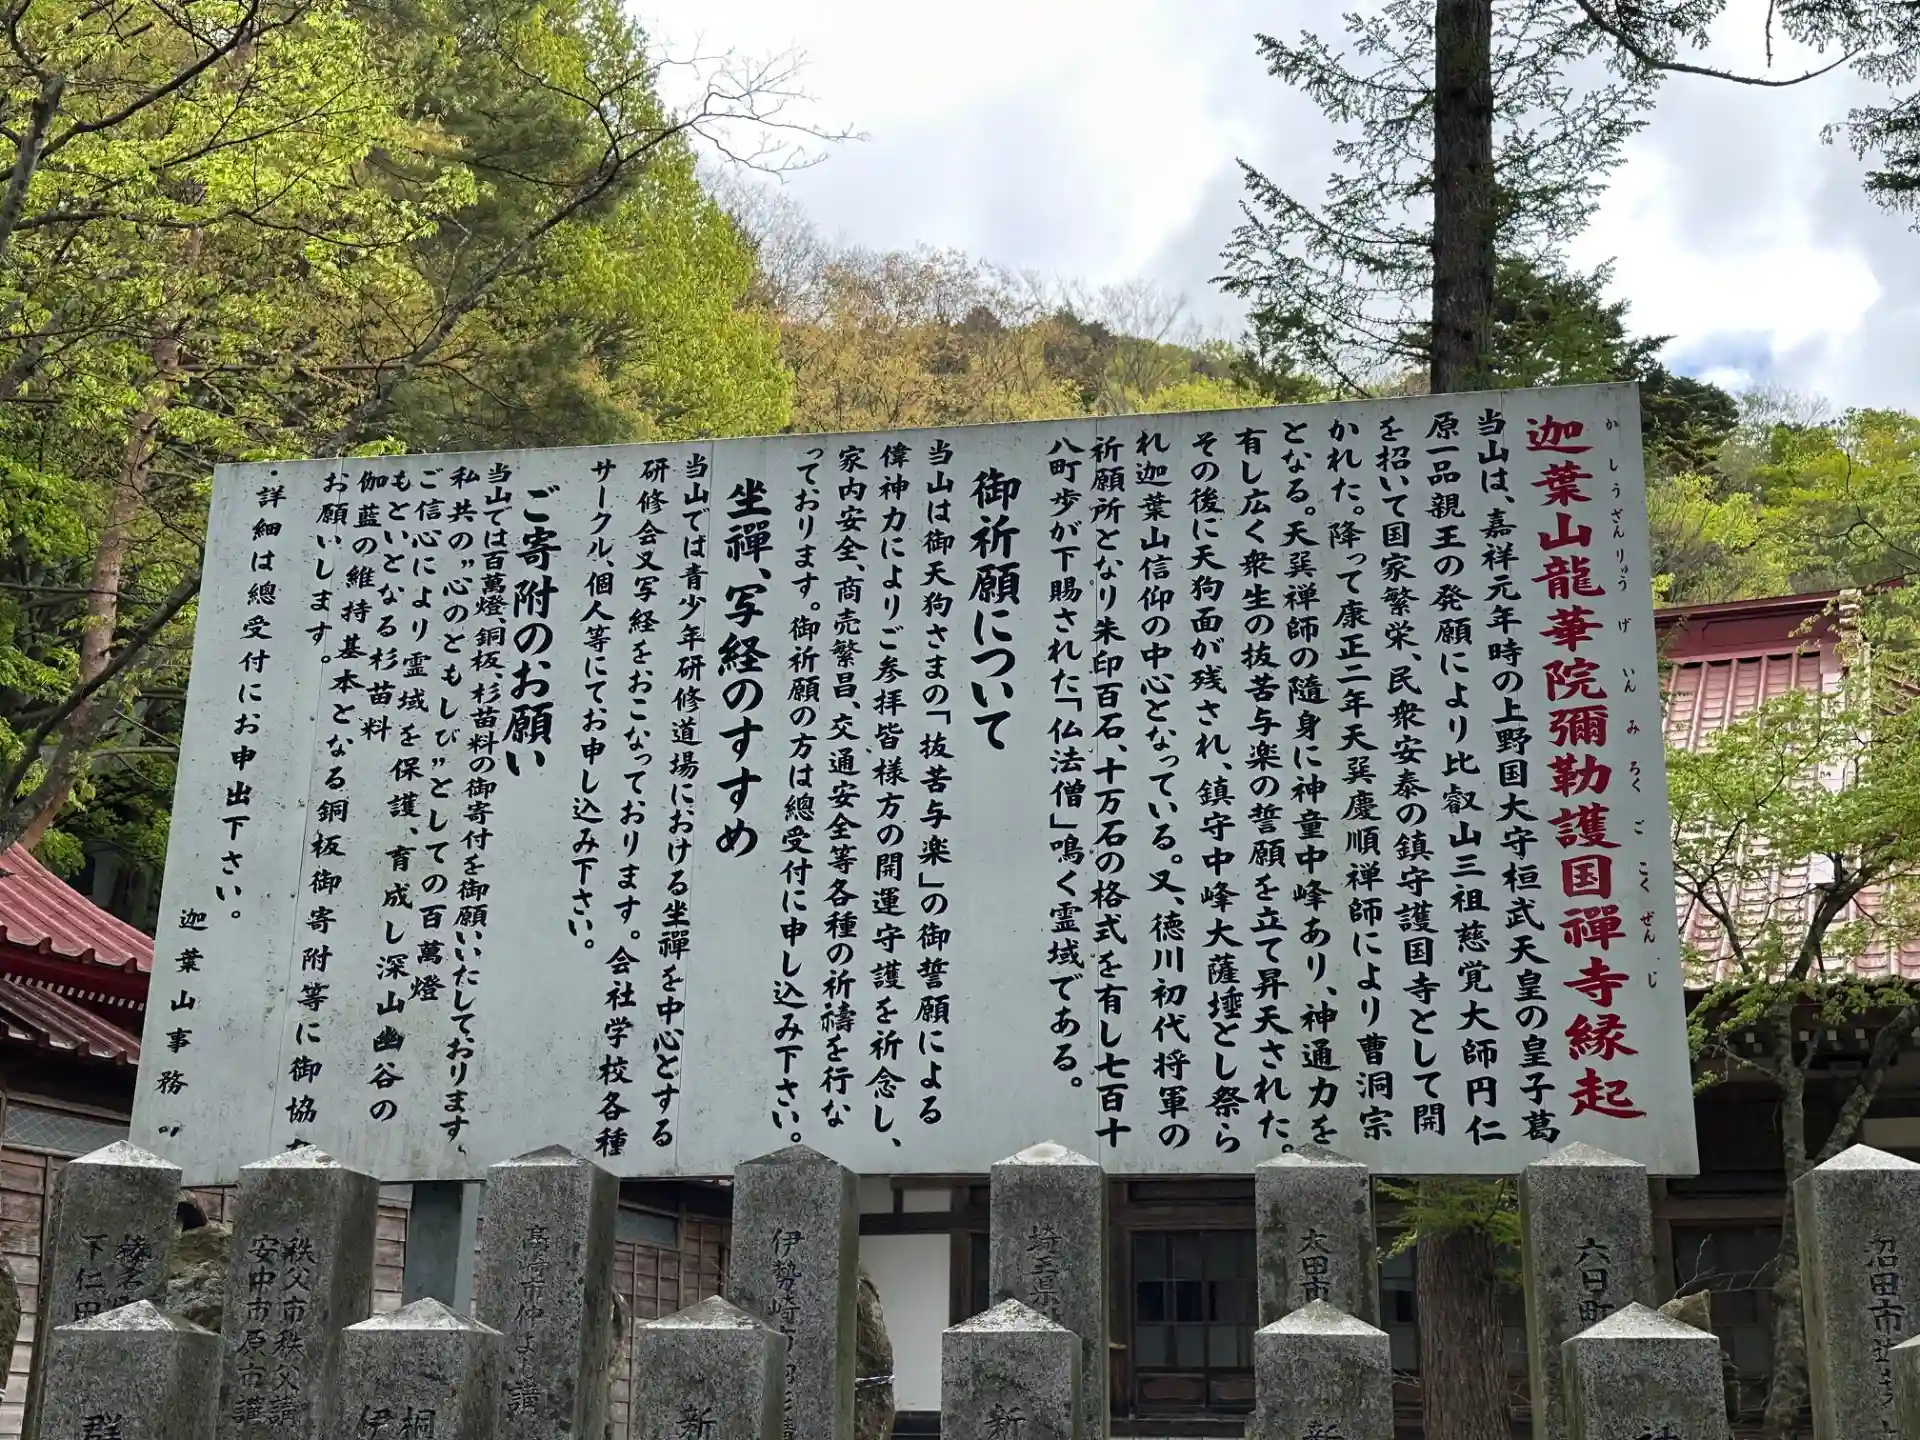 迦葉山龍華院彌勒護国禪寺縁起
かしょうざんりゅうげいんみろくごこくぜんじ
当山は、嘉祥元年時の上野国大守桓武天皇の皇子葛
原一品親王の発願により比叡山三祖慈覚大師円仁
を招いて国家繁栄、民衆安泰の鎮守護国寺として開
かれた。降って康正二年天巽慶順禅師により曹洞宗
となる。天巽禅師の隨身に神童中峰あり、神通力を
有し広く衆生の抜苦与楽の誓願を立て昇天された。
その後に天狗面が残され、鎮守中峰大薩埵とし祭ら
れ迦葉山信仰の中心となっている。又、徳川初代将軍の
祈願所となり朱印百石、十万石の格式を有し七百十
八町歩が下賜された「仏法僧」鳴く霊域である。
御祈願について
当山は御天狗さまの「抜苦与楽」の御誓願による
偉神力によりご参拝皆様方の開運守護を祈念し、
家内安全、商売繁昌、交通安全等各種の祈禱を行な
っております。御祈願の方は總受付に申し込み下さい。
坐禪、写経のすすめ
当山では青少年研修道場における坐禪を中心とする
研修会又写経をおこなっております。会社学校各種
サークル、個人等にてお申し込み下さい。
ご寄附のお願い
当山では百萬燈、銅板、杉苗料の御寄付を御願いいたしております、
私共の"心のともしび"としての百萬燈
ご信心により霊域を保護、育成し深山幽谷の
もといとなる杉苗料
伽藍の維持基本となる銅板御寄附等に御協
お願いします。
・詳細は總受付にお申出下さい。
迦葉山事務
下仁田
安中市原市講
秩父市秩父講
高崎市仲よし講
伊勢崎市
埼玉県
太田市
六日町
沼田市
群
伊
桐
新
新
新